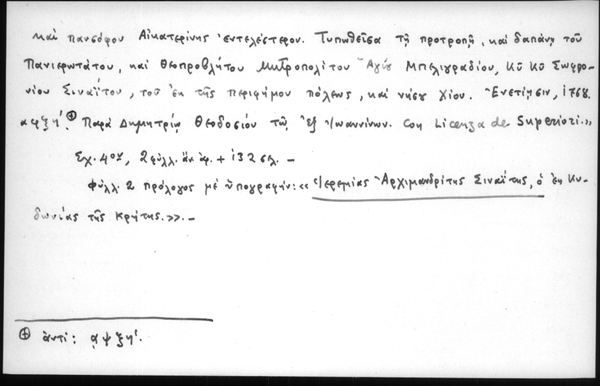 καὶ πανσόφου Αἰκατερίνης ἐντελέστερον. Τυπωθεῖσα τῇ προτροπῇ, καὶ δαπάνῃ τοῦ
Πανιερωτάτου, καὶ Θεοπροβλήτου Μητροπολίτου Ἁγίου Μπελιγραδίου, Κῦ Κῦ Σωφρο-
νίου Σιναΐτου, τοῦ ἐκ τῆς περιφήμου πόλεως, καὶ νήσου Χίου. Ἐνετίησιν, 1768.
αφξη΄.⊕ Παρὰ Δημητρίῳ Θεοδοσίου τῷ ἐξ Ἰωαννίνων. Con Licenza de Superiori.»
Σχ. 4ον, 2 φύλλ. ἄν. ἀρ. + 132 σελ. —
Φύλλ. 2 πρόλογος μὲ ὑπογραφήν: «Ἱερεμίας Ἀρχιμανδρίτης Σιναΐτης, ὁ ἐκ Κυ-
δωνίας τῆς Κρήτης.». —
⊕ ἀντί: αψξη΄.